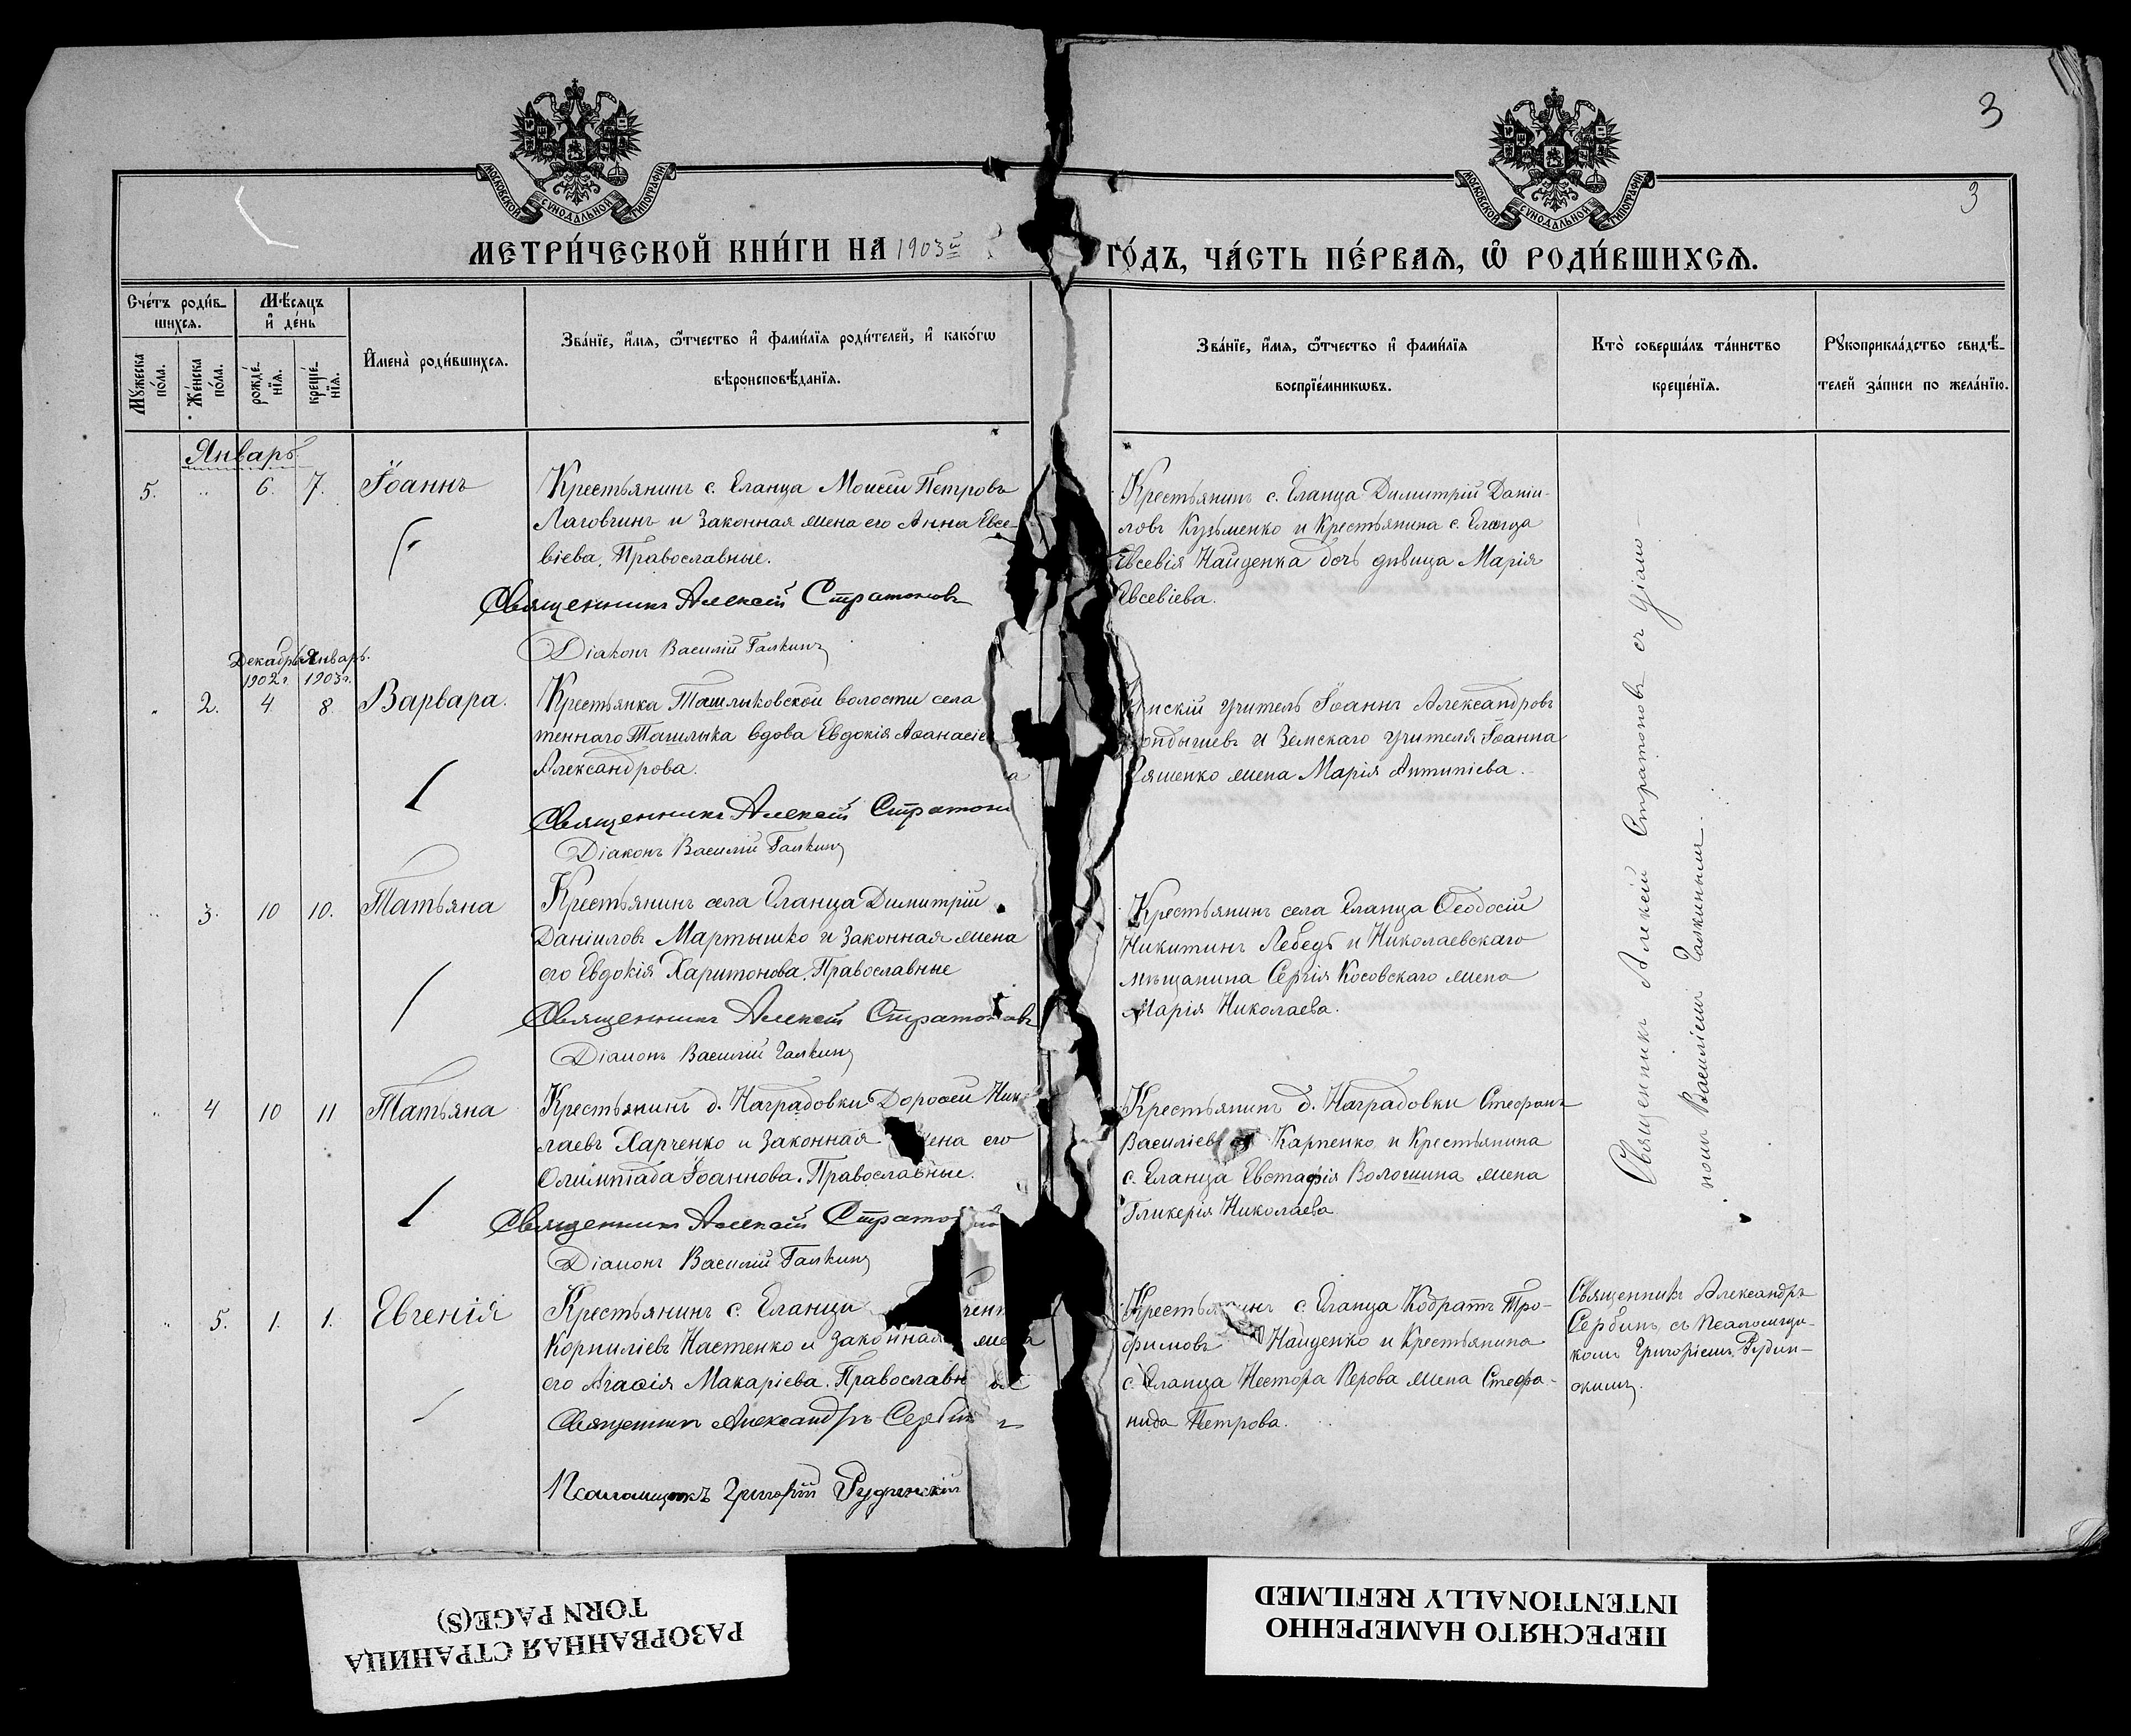 3
3
МОСКОВСКОЙ СѴНОДАЛЬНОЙ ТИПОГРАФІИ
МОСКОВСКОЙ СѴНОДАЛЬНОЙ ТИПОГРАФІИ
МЕТРИ́ЧЕСКОЙ КНИ́ГИ НА 1903й ГО́ДЪ, ЧА́СТЬ ПЕ́РВАѦ, Ѡ РОДИ́ВШИХСѦ.
Сче́тъ роди́в-
шихся.
Мꙋжеска по́ла.
Же́нска по́ла.
Мѣ́сяцъ
и҆ де́нь
рожде́-
нїя.
креще́-
нїя.
И҆мена̀ роди́вшихся.
Зва́нїе, и҆́мя, ѻ҆́тчество и҆ фами́лїя роди́телей, и҆ како́гѡ
вѣроисповѣ́данїя.
Зва́нїе, и҆́мя, ѻ҆́тчество и҆ фами́лїя
воспрїе́мникѡвъ.
Кто̀ соверша́лъ та́инство
креще́нїя.
Рꙋкоприкла́дство свидѣ́-
телей за́писи по жела́нїю.
Январь
5. " 6. 7. Іоаннъ
Крестьянинъ с. Еланца Моисей Петровъ
Лаговчинъ и законная жена его Анна Евсе-
віева, Православные.
Священникъ Алексій Стратоновъ
Діаконъ Василій Галкинъ
Крестьянинъ с. Еланца Димитрій Даніи-
ловъ Кузьменко и Крестьянина с. Еланца
Евсевія Найденка дочь дѣвица Марія
Евсевіева.
Декабрь Январь.
1902 г. 1903 г.
" 2. 4 8. Варвара.
Крестьянка Ташлыковской волости села
теннаго Ташлыка вдова Евдокія Аѳанасіе
Александрова.
Священникъ Алексій Стратон
Діаконъ Василій Галкинъ
нскій учитель Іоаннъ Александровъ
ондышевъ и Земскаго учителя Іоанна
яшенко жена Марія Антипіева.
" 3. 10 10. Татьяна
Крестьянинъ села Еланца Димитрій
Даніиловъ Мартышко и законная жена
его Евдокія Харитонова. Православные
Священникъ Алексій Стратоновъ
Діаконъ Василій Галкинъ
Крестьянинъ села Еланца Ѳеодосій
Никитинъ Лебедь и Николаевскаго
мѣщанина Сергія Косовскаго жена
Марія Николаева.
" 4 10 11 Татьяна
Крестьянинъ д. Наградовки Дороѳей Ник
лаевъ Харченко и законная жена его
Олимпіада Іоаннова. Православные.
Священникъ Алексій Стратоно
Діаконъ Василій Галкинъ
Крестьянинъ д. Наградовки Стефанъ
Василіевъ Карпенко и Крестьянина
с. Еланца Евстафія Волошина жена
Гликерія Николаева
Священникъ Алексій Стратоновъ съ діако-
номъ Василіемъ Галкинымъ.
" 5. 1. 1. Евгенія
Крестьянинъ с. Еланца
Корниліевъ Настенко и законная жена
его Агафія Макаріева. Православные
Священникъ Александръ Сербинъ
Псаломщикъ Григорій Рудинскій
Крестьянинъ с. Еланца Кодратъ Тро-
фимовъ Найденко и Крестьянина
с. Еланца Нестора Перова жена Стефа-
нида Петрова.
Священникъ Александръ
Сербинъ, съ Псаломщи-
комъ Григоріемъ Рудин-
скимъ.
РАЗОРВАННАЯ СТРАНИЦА
TORN PAGE(S)
ПЕРЕСНЯТО НАМЕРЕННО
INTENTIONALLY REFILMED